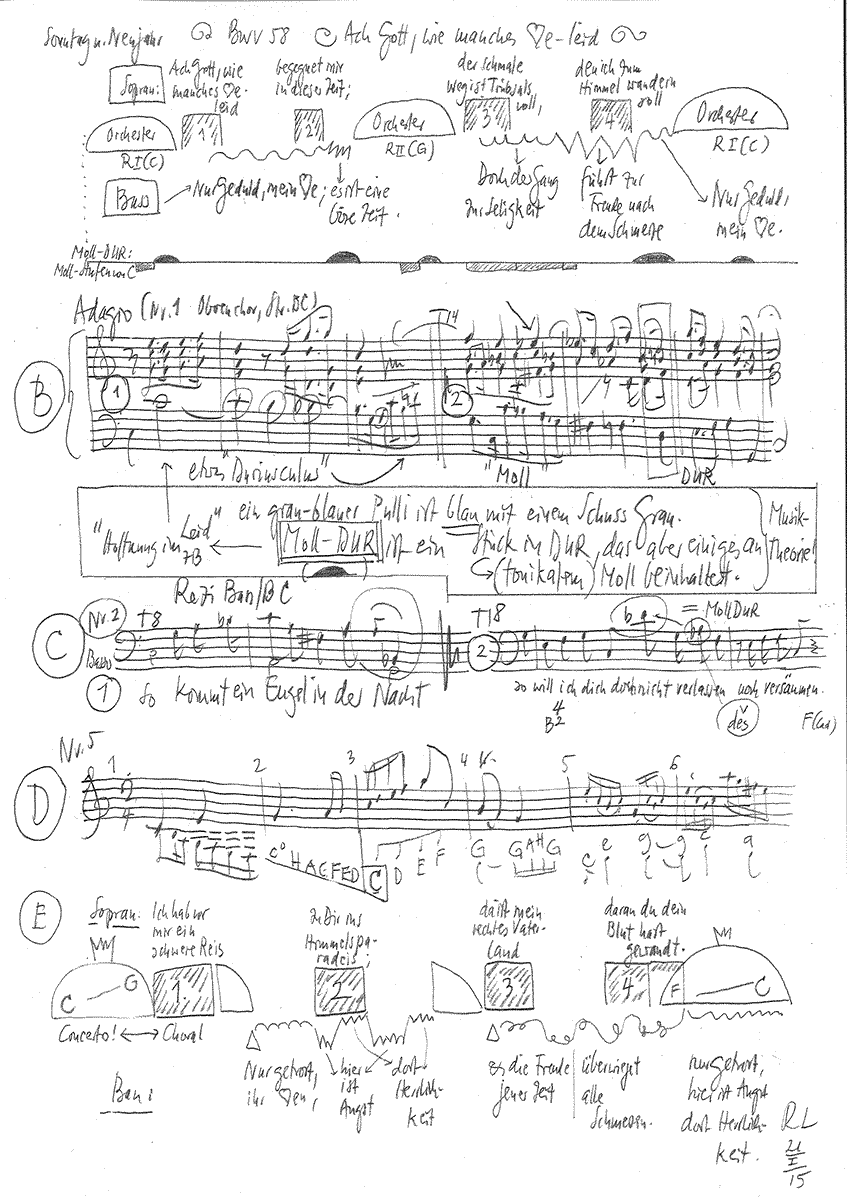 Sonntag n. Neujahr BWV 58 Ach Gott, wie manches ♡e-leid
Sopran:
Ach Gott, wie
manches ♡e-
leid
begegnet mir
in dieser Zeit;
der schmale
Weg ist Trübsals
voll,
den ich zum
Himmel wandern
soll
Orchester
1
2
Orchester
3
4
Orchester
RI(C)
RII(G)
RI(C)
Bass
Nur Geduld, mein ♡e; es ist eine
böse Zeit.
Doch der Gang
zur Seligkeit
führt zur
Freude nach
dem Schmerze
Nur Geduld,
mein ♡e.
Moll-DUR:
Moll-Stufen von C
Adagio (Nr.1 Oboenchor, Str. BC)
T14
B
1
2
etwas "Duriusculus"
"Moll"
DUR
"Hoffnung im Leid"
ein grau-blauer Pulli ist blau mit einem Schuss Grau.
Moll-DUR ist ein Stück in DUR, das aber einiges an
(tonikalem) Moll beinhaltet.
Musik-
Theorie!
Rezi Bass/BC
Nr.2
T8
T18
= MollDur
C
Basso
2
1
So kommt ein Engel in der Nacht
so will ich dich doch nicht verlassen noch versäumen.
4
B2
des
Nr. 5
1
2
3
4
5
6
D
C H A G F E D
C D E F G G A H G c e g g c a
E
Sopran:
Ich hab vor
mir ein
schwere Reis
zu Dir ins
Himmelspa-
radeis;
da ist mein
rechtes Vater-
land
daran du dein
Blut hast
gewandt.
C G
1.
2
3
4
F C
Concerto! Choral
Bass:
Nur getrost,
ihr ♡en,
hier
ist
Angst
dort
Herrlich-
keit
die Freude
jener Zeit
überwiegt
alle
Schmerzen.
nur getrost,
hier ist Angst
dort Herrlich-
keit.
RL
21
I
15